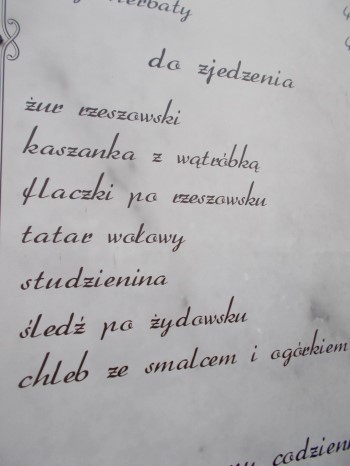 herbaty
do zjedzenia
żur rzeszowski
kaszanka z wątróbką
flaczki po rzeszowsku
tatar wołowy
studzienina
śledź po żydowsku
chleb ze smalcem i ogórkiem